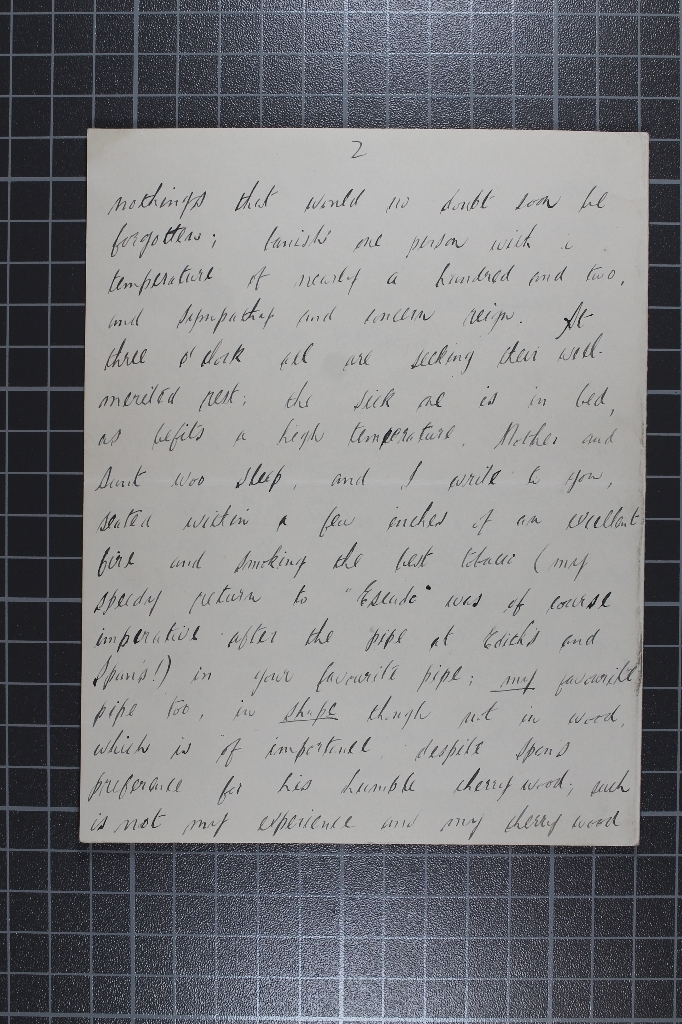 2
nothings that would no doubt soon be
forgotten; banish one person with a
temperature of nearly a hundred and two,
and sympathy and concern reign. At
three o'clock all are seeking their well-
merited rest; the sick one is in bed,
as befits a high temperature. Mother and
Aunt woo sleep, and I write to you,
seated within a few inches of an excellent
fire and smoking the best tobacco (my
speedy return to "Escudo" was of course
imperative after the pipe at and
Span's!) in your favourite pipe; my favourite
pipe too, in shape though not in wood,
which is of importance despite Span's
preference for his humble cherry wood; such
is not my experience and my cherry wood